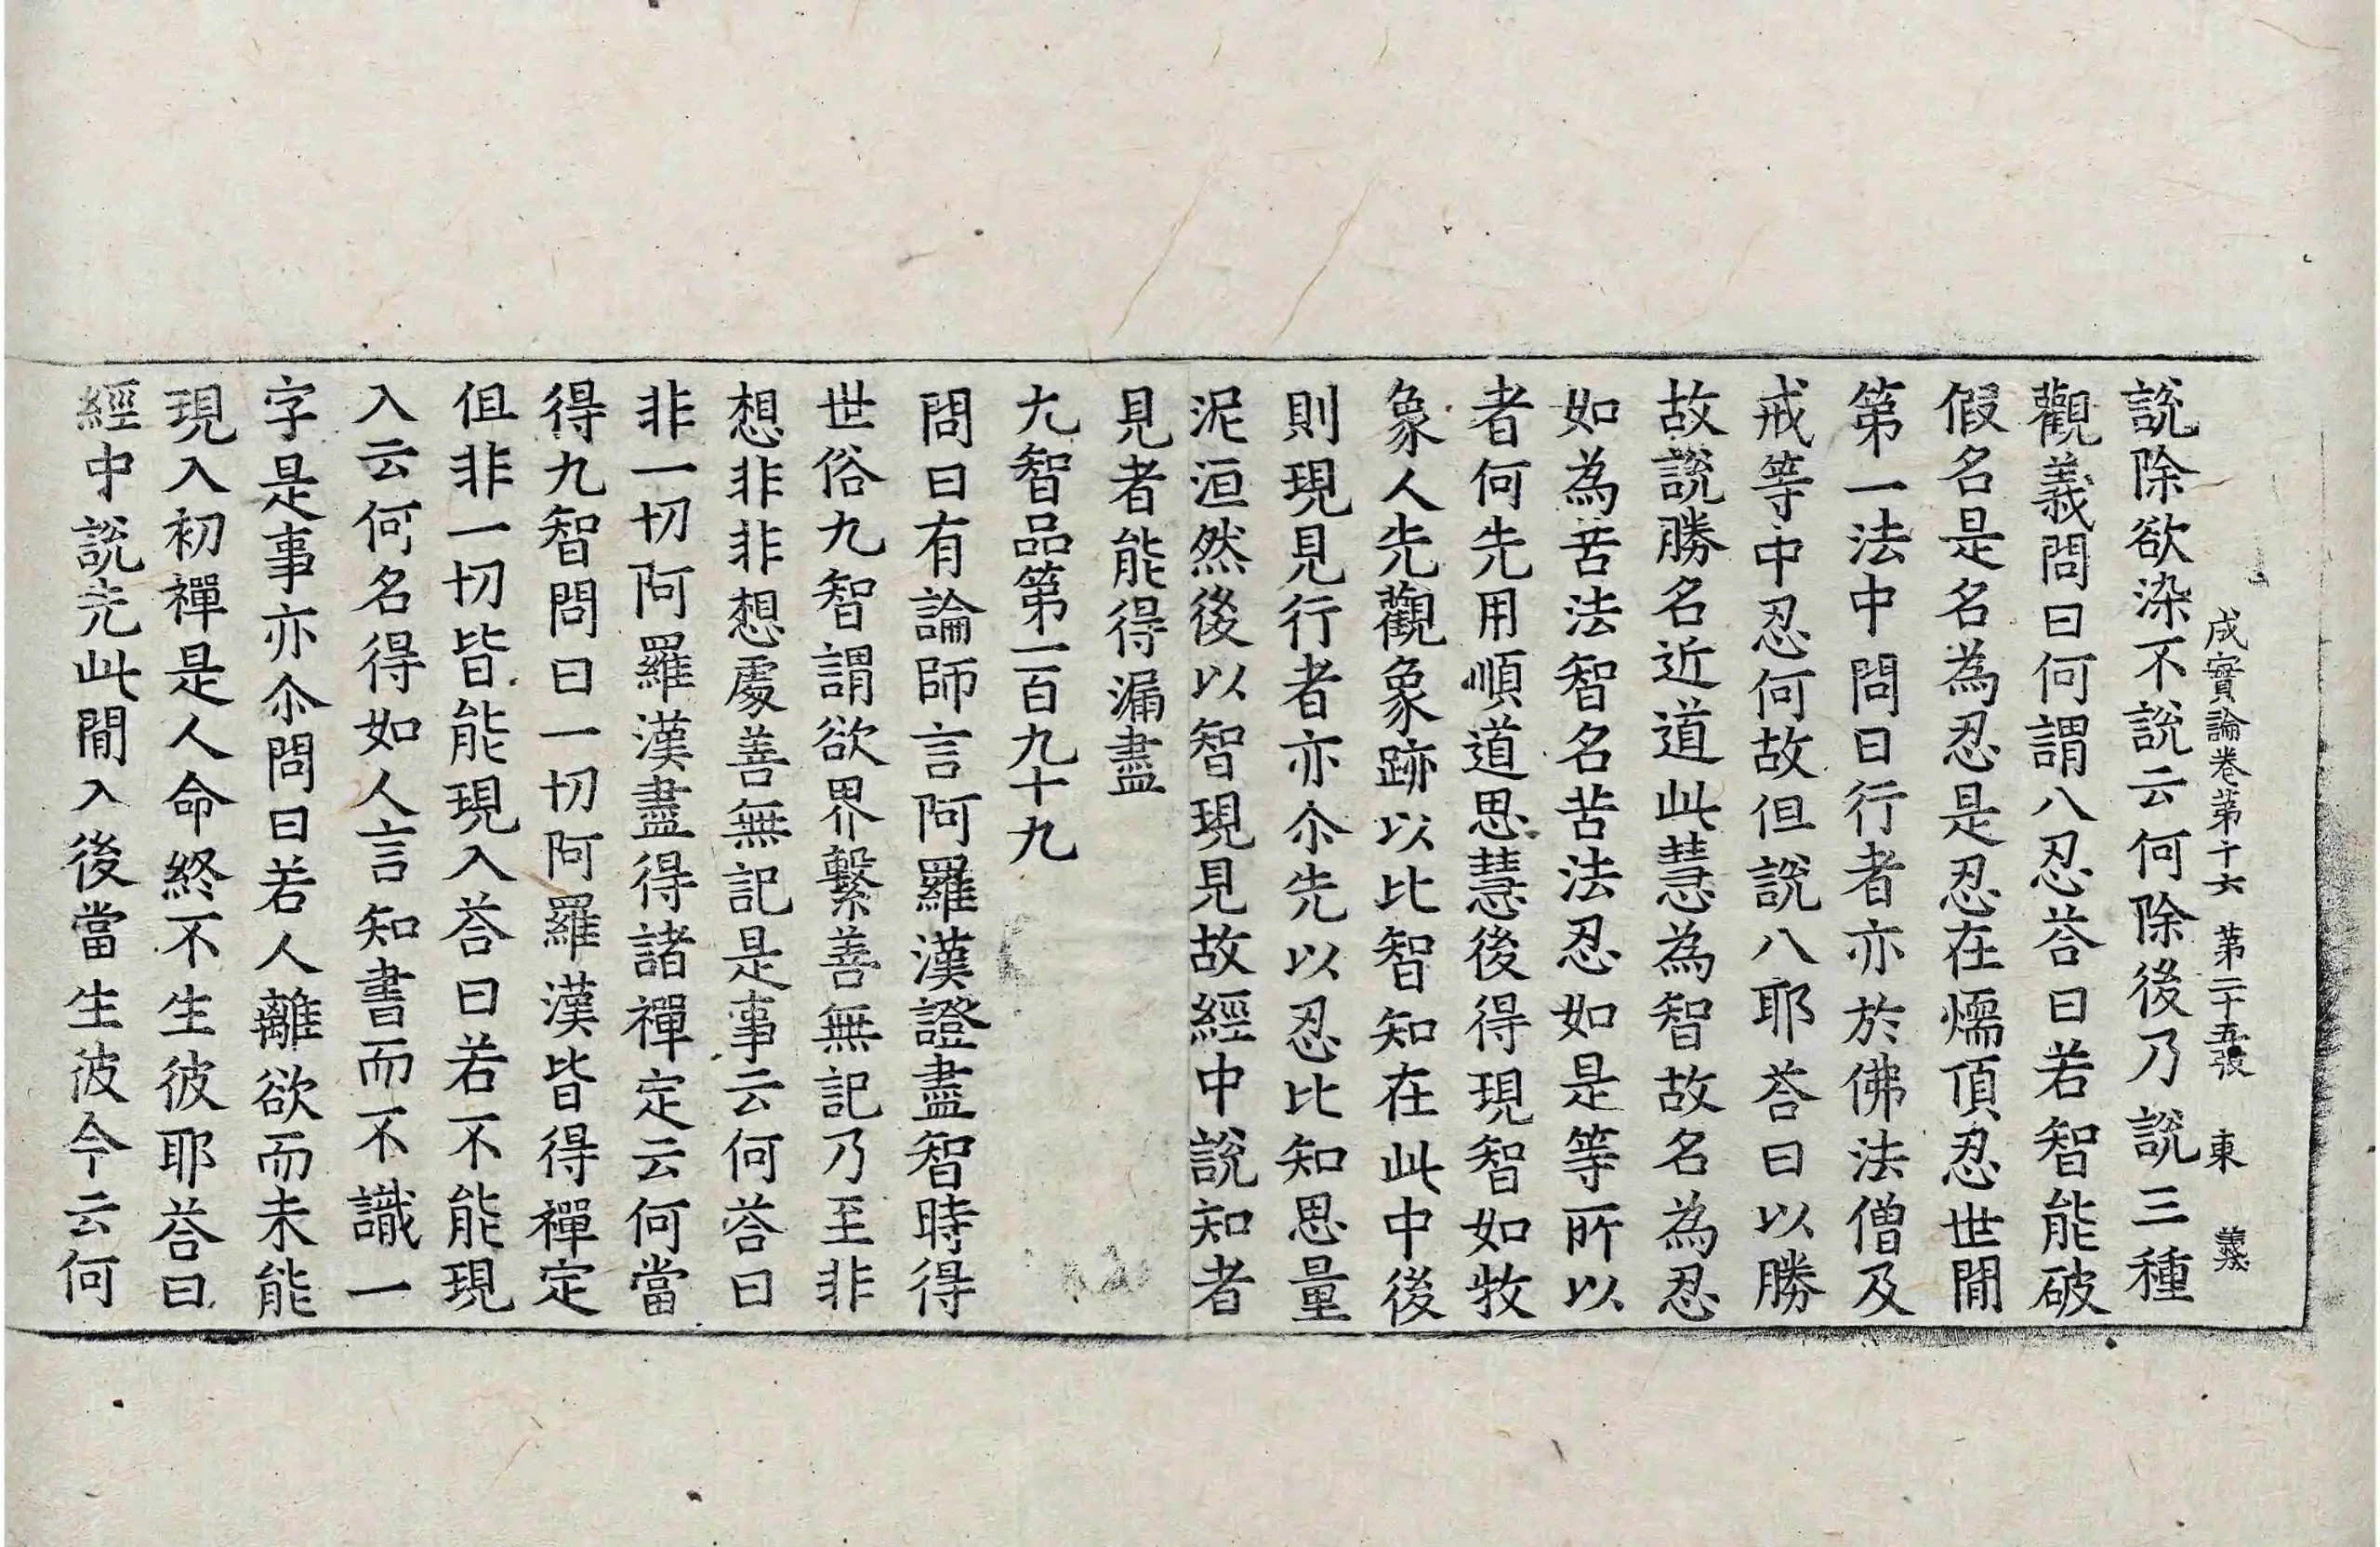 成實論卷第十六 第二十五張 東 義
說除欲染不說云何除後乃說三種
觀義問曰何謂八忍荅曰若智能破
假名是名為忍是忍在煗頂忍世閒
第一法中問曰行者亦於佛法僧及
戒等中忍何故但說八耶荅曰以勝
故說勝名近道此慧為智故名為忍
如為苦法智名苦法忍如是等所以
者何先用順道思慧後得現智如牧
象人先觀象跡以比智知在此中後
則現見行者亦尒先以忍比知思量
泥洹然後以智現見故經中說知者
見者能得漏盡
九智品第一百九十九
問曰有論師言阿羅漢證盡智時得
世俗九智謂欲界繫善無記乃至非
想非非想處善無記是事云何荅曰
非一切阿羅漢盡得諸禪定云何當
得九智問曰一切阿羅漢皆得禪定
但非一切皆能現入荅曰若不能現
入云何名得如人言知書而不識一
字是事亦尒問曰若人離欲而未能
現入初禪是人命終不生彼耶荅曰
經中說先此閒入後當生彼今云何